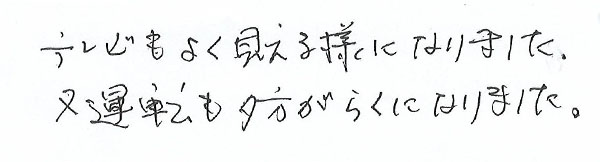 テレビもよく見える様になりました.
又運転も夕方がらくになりました。